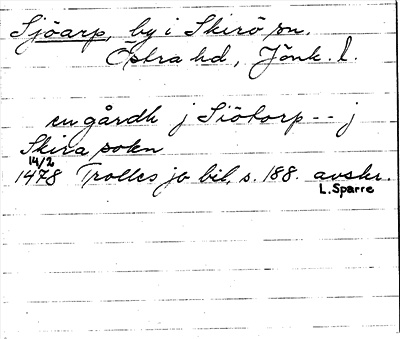 Sjöarp, by i Skirö sn.
Östra hd, Jönk. l.
en gårdh j Siötorp -- j
Skira sokn
14/2
1478 Trolles jo bil. s. 188. avskr.
L. Sparre